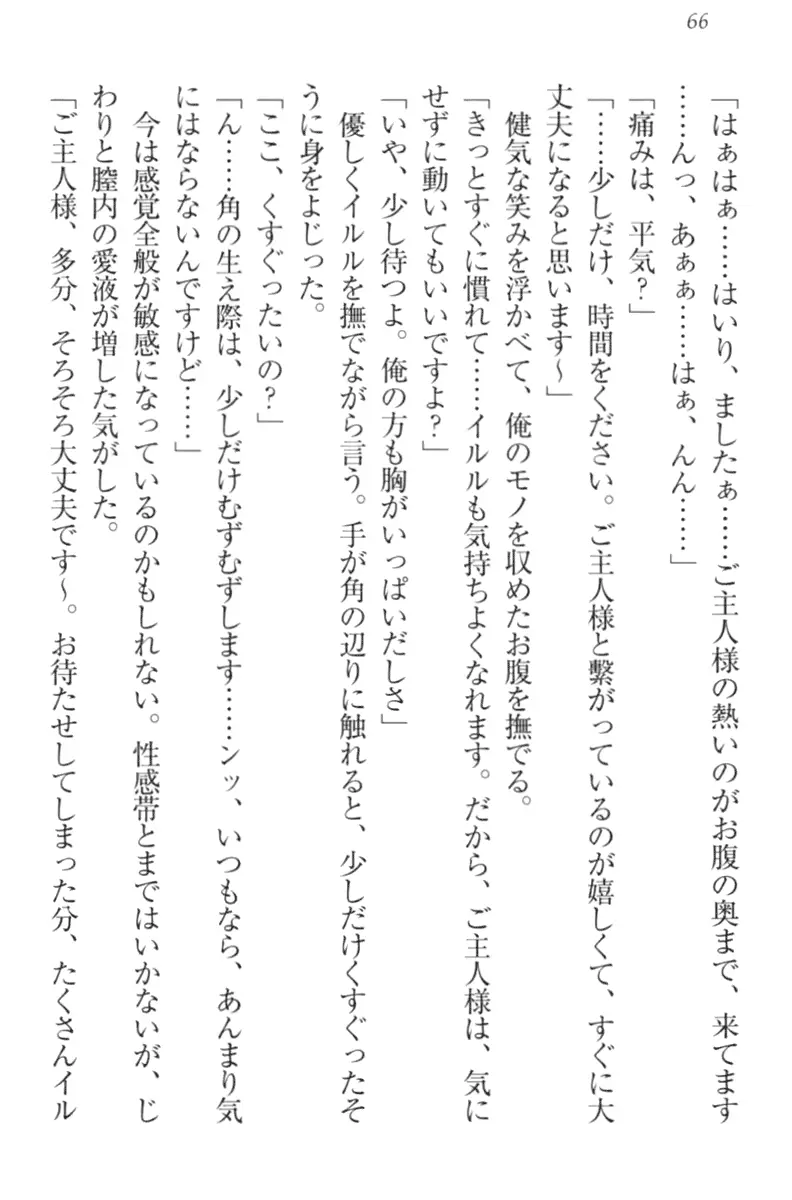 66
「はぁはぁ……はいり、ましたぁ……ご主人様の熱いのがお腹の奥まで、来てます
……んっ、あぁぁ……はぁ、んん……」
「痛みは、平気？」
「……少しだけ、時間をください。ご主人様と繋がっているのが嬉しくて、すぐに大
丈夫になると思います～」
健気な笑みを浮かべて、俺のモノを収めたお腹を撫でる。
「きっとすぐに慣れて……イルルも気持ちよくなれます。だから、ご主人様は、気に
せずに動いてもいいですよ？」
「いや、少し待つよ。俺の方も胸がいっぱいだしさ」
優しくイルルを撫でながら言う。手が角の辺りに触れると、少しだけくすぐったそ
うに身をよじった。
「ここ、くすぐったいの？」
「ん……角の生え際は、少しだけむずむずします……ンッ、いつもなら、あんまり気
にはならないんですけど……」
今は感覚全般が敏感になっているのかもしれない。性感帯とまではいかないが、じ
わりと膣内の愛液が増した気がした。
「ご主人様、多分、そろそろ大丈夫です～。お待たせしてしまった分、たくさんイル